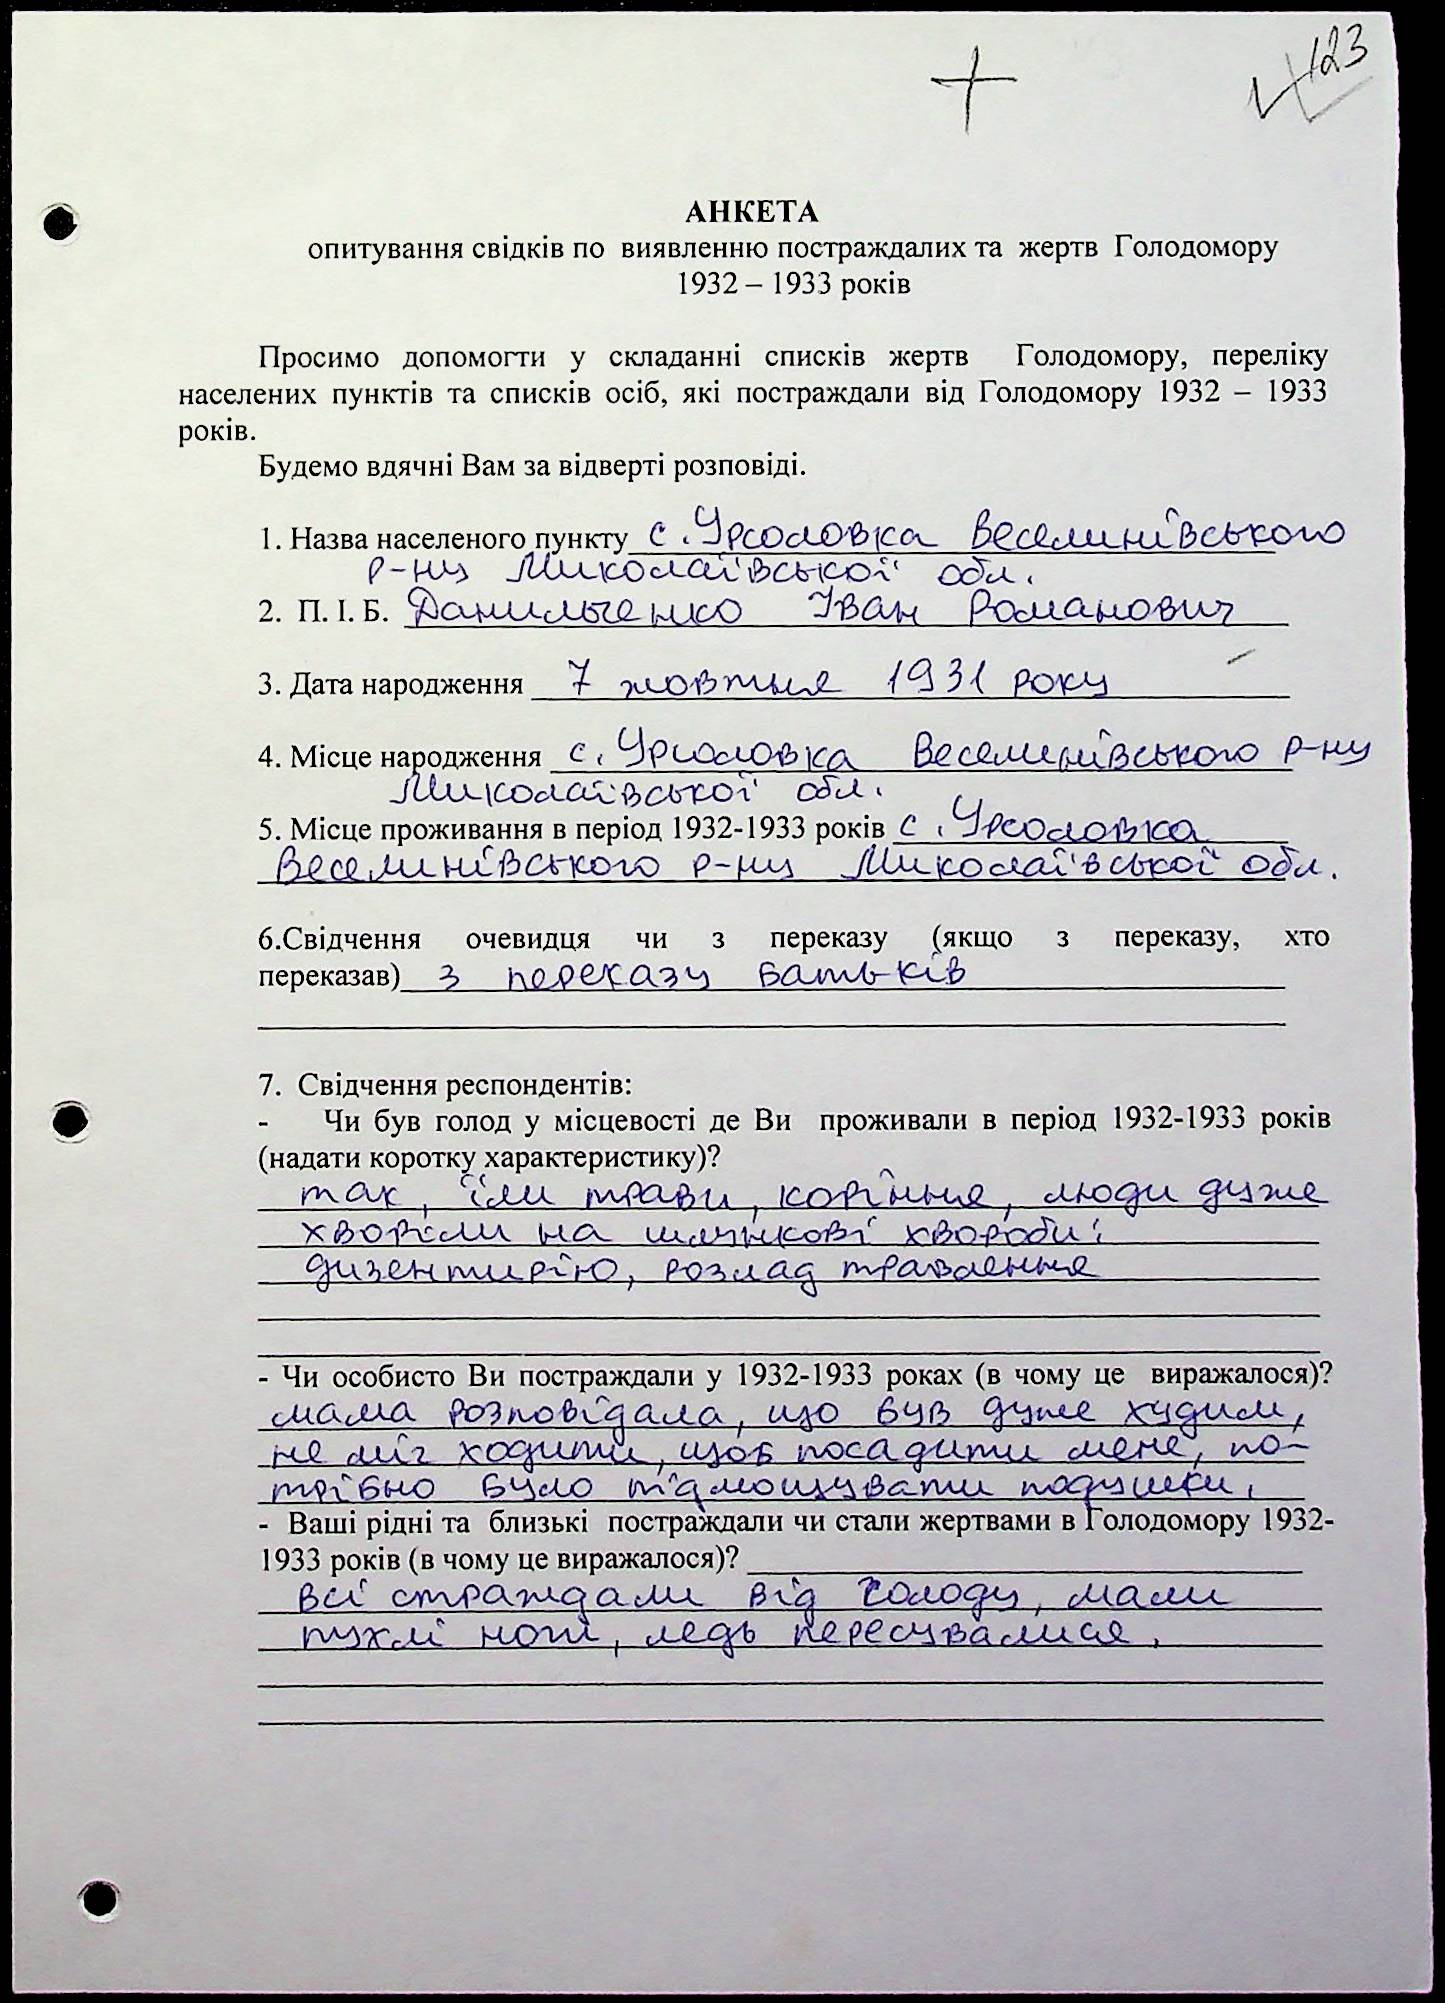 123
АНКЕТА
опитування свідків по виявленню постраждалих та жертв Голодомору
1932 – 1933 років
Просимо допомогти у складанні списків жертв Голодомору, переліку
населених пунктів та списків осіб, які постраждали від Голодомору 1932 – 1933
років.
Будемо вдячні Вам за відверті розповіді.
1. Назва населеного пункту с. Урсоловка Веселинівського
р-ну Миколаївської обл.
2. П. І. Б. Данильченко Іван Романович
3. Дата народження 7 жовтня 1931 року
4. Місце народження с. Урсоловка Веселинівського р-ну
Миколаївської обл.
5. Місце проживання в період 1932-1933 років с. Урсоловка
Веселинівського р-ну Миколаївської обл.
6.Свідчення очевидця чи з переказу (якщо з переказу, хто
переказав) з переказу батьків
7. Свідчення респондентів:
- Чи був голод у місцевості де Ви проживали в період 1932-1933 років
(надати коротку характеристику)?
так, їли трави, коріння, люди дуже
хворіли на шлункові хвороби:
дизентирію, розлад травлення
- Чи особисто Ви постраждали у 1932-1933 роках (в чому це виражалося)?
мама розповідала, що був дуже худим,
не міг ходити, щоб посадити мене, по-
трібно було підмощувати подушки.
- Ваші рідні та близькі постраждали чи стали жертвами в Голодомору 1932-
1933 років (в чому це виражалося)?
всі страждали від голоду, мали
пухлі ноги, ледь пересувалися.